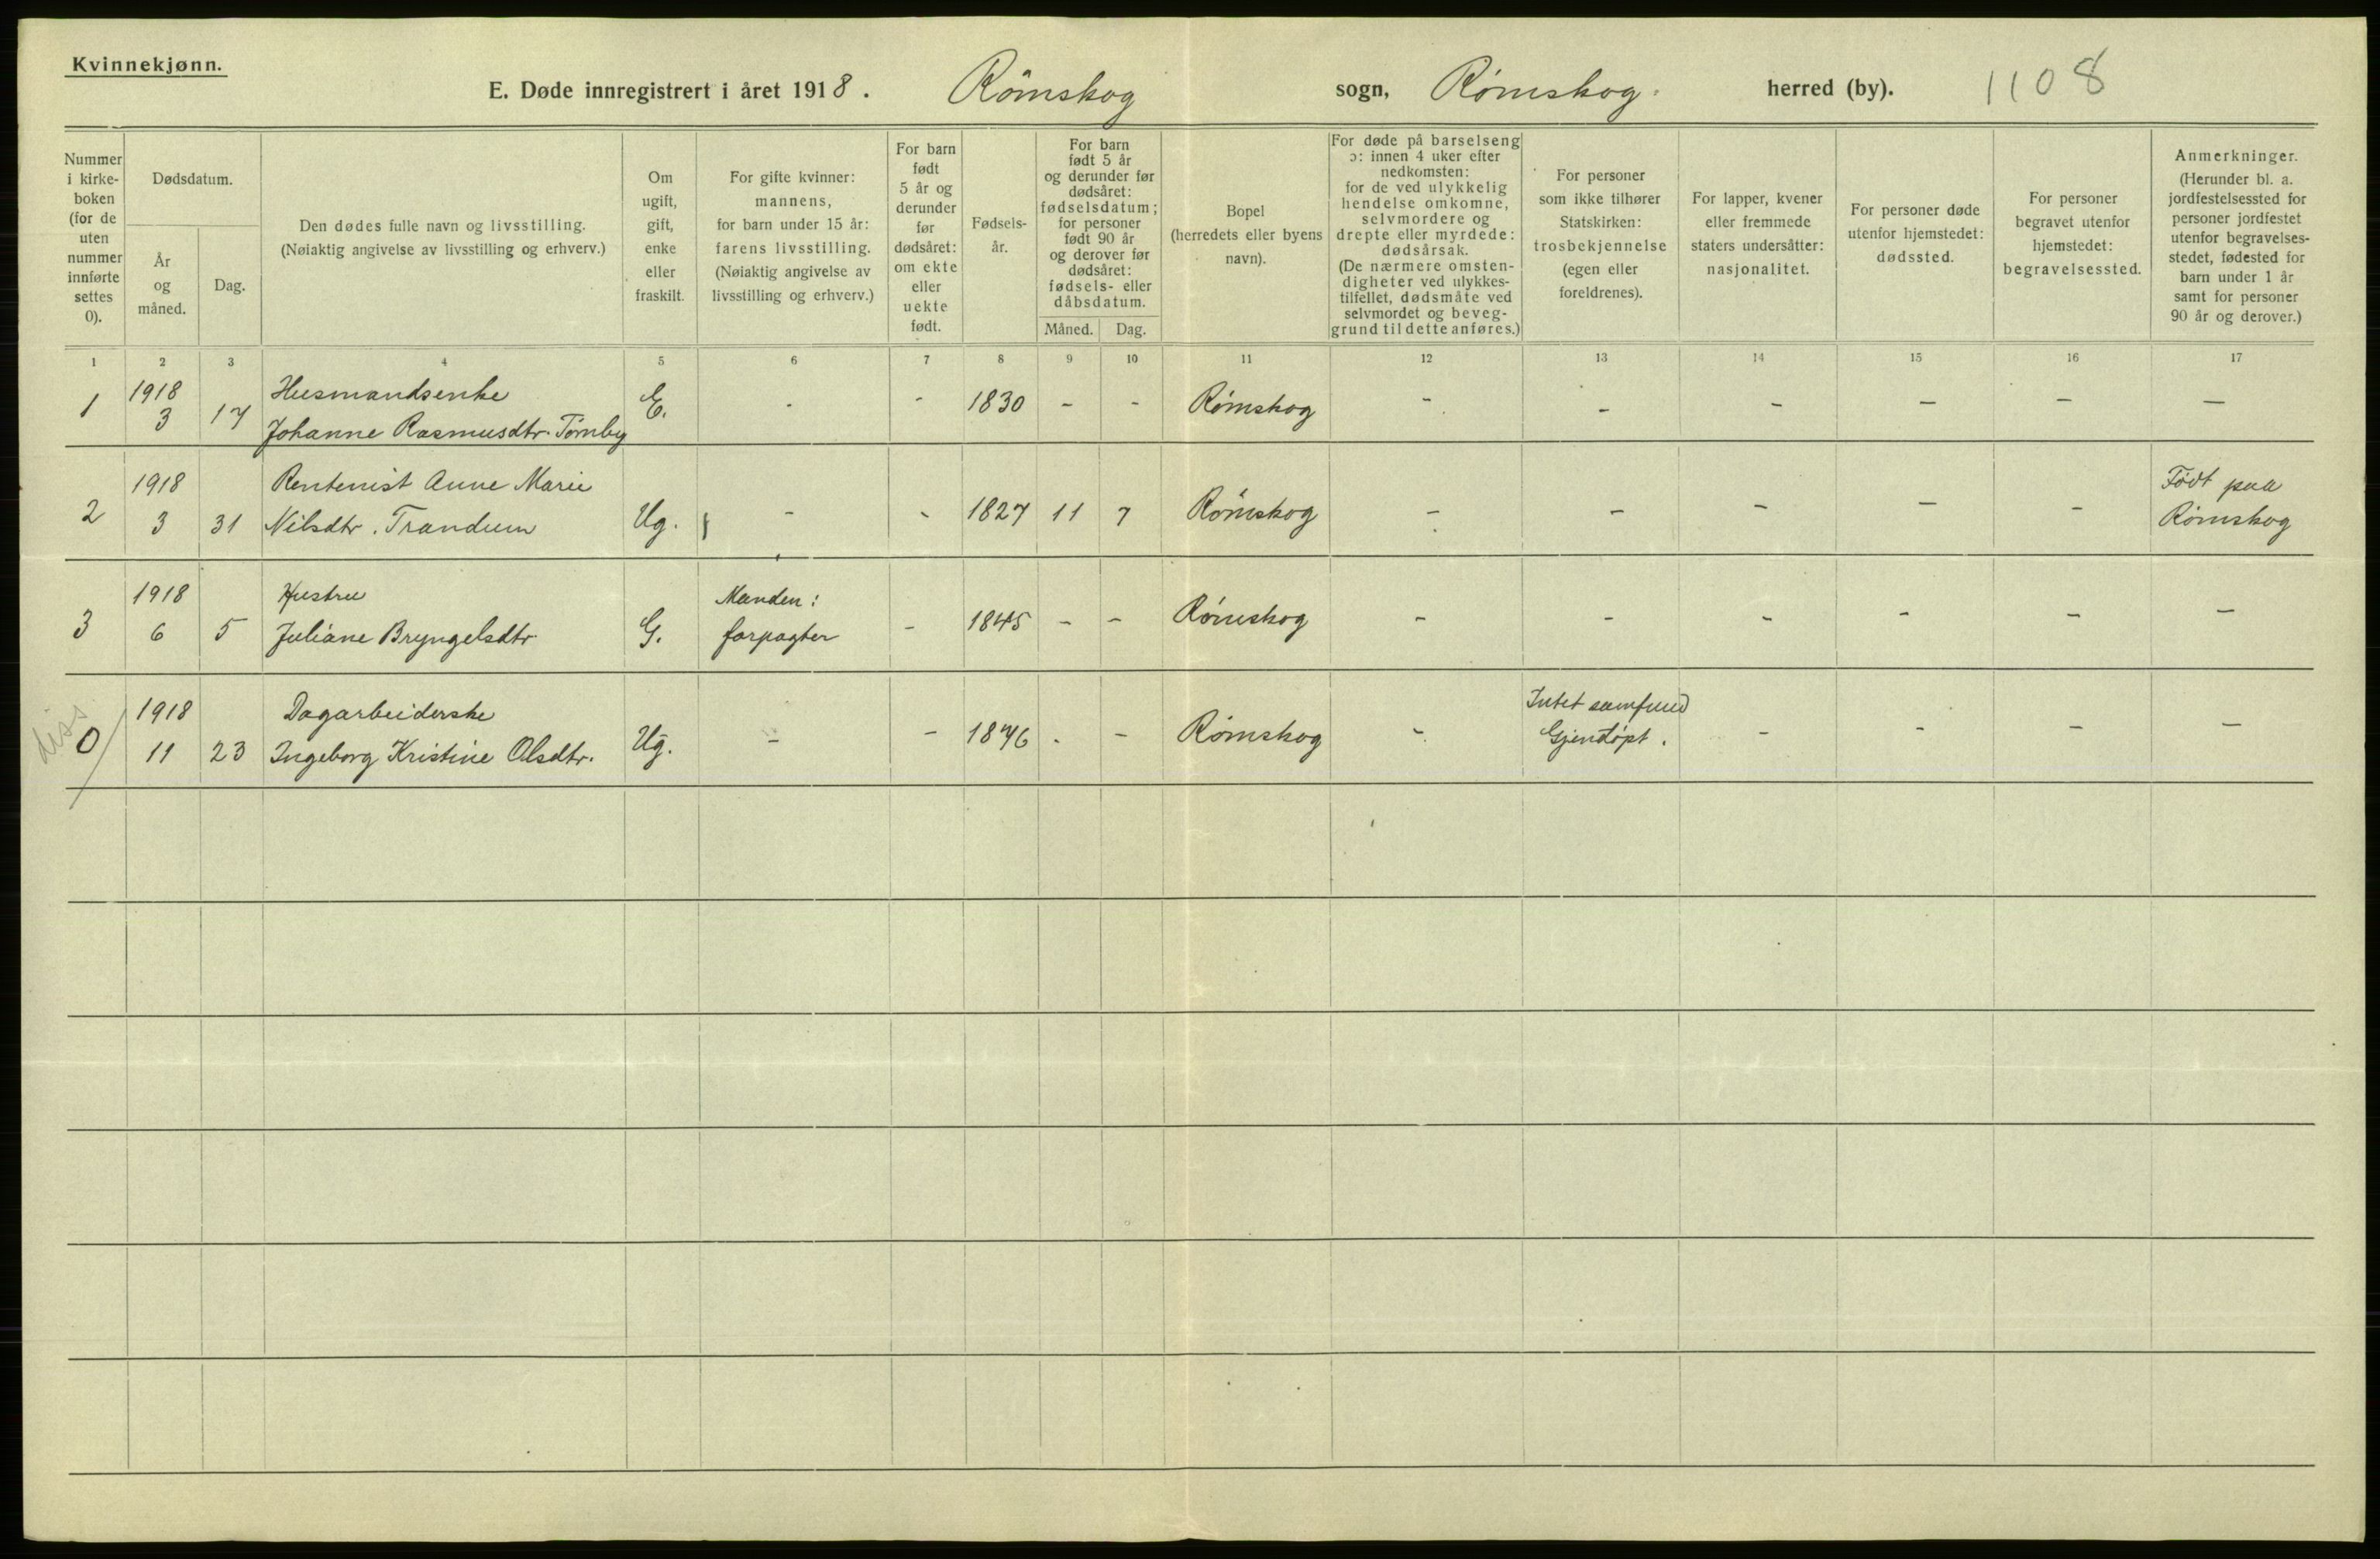 Kvinnekjønn.
E. Døde innregistrert i året 1918. Römskog sogn, Rømskog. herred (by). 1108
Nummer i kirke-boken (for de uten nummer innførte settes 0).
Dødsdatum.
År og måned.
Dag.
Den dødes fulle navn og livsstilling.
(Nøiaktig angivelse av livsstilling og erhverv.)
Om ugift, gift, enke eller fraskilt.
For gifte kvinner: mannens, for barn under 15 år: farens livsstilling. (Nøiaktig angivelse av livsstilling og erhverv.)
For barn født 5 år og derunder før dødsåret: om ekte eller uekte født.
Fødsels-år.
For barn født 5 år og derunder før dødsåret: fødselsdatum; for personer født 90 år og derover før dødsåret: fødsels- eller dåbsdatum.
Måned. Dag.
Bopel (herredets eller byens navn).
For døde på barselseng ɔ: innen 4 uker efter nedkomsten: for de ved ulykkelig hendelse omkomne, selvmordere og drepte eller myrdede: dødsårsak. (De nærmere omsten-digheter ved ulykkes-tilfellet, dødsmåte ved selvmordet og beveg-grund til dette anføres.)
For personer som ikke tilhører Statskirken: trosbekjennelse (egen eller foreldrenes).
For lapper, kvener eller fremmede staters undersåtter: nasjonalitet.
For personer døde utenfor hjemstedet: dødssted.
For personer begravet utenfor hjemstedet: begravelsessted.
Anmerkninger. (Herunder bl. a. jordfestelsessted for personer jordfestet utenfor begravelses-stedet, fødested for barn under 1 år samt for personer 90 år og derover.)
1 2 3 4 5 6 7 8 9 10 11 12 13 14 15 16 17
1 1918 3 17 Husmandsenke
Johanne Rasmusdtr. Tørnby E. - - 1830 - - Rømskog - - - - - -
2 1918 3 31 Rentenist Anne Marie
Nilsdtr. Trandum Ug. - - 1827 11 7 Römskog - - - - - Født paa
Rømskog
3 1918 6 5 Hustru
Juliane Bryngelsdtr. G. Manden:
forpagter - 1845 - - Rømskog - - - - - -
diss.
0 1918 11 23 Dagarbeiderske
Ingeborg Kristine Olsdtr. Ug. - - 1876 - - Rømskog - Intet samfund
Gjendøpt. - - - -